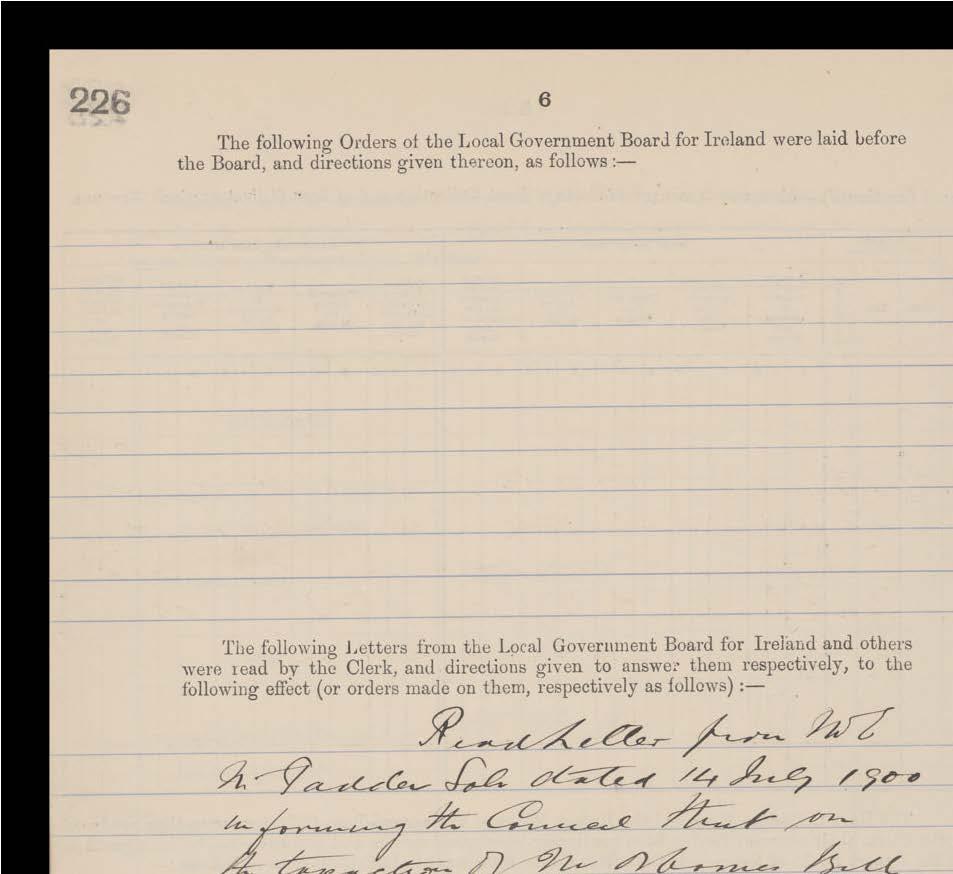 226
6
The following Orders of the Local Government Board for Ireland were laid before
the Board, and directions given thereon, as follows:—
The following Letters from the Local Government Board for Ireland and others
were read by the Clerk, and directions given to answer them respectively, to the
following effect (or orders made on them, respectively as follows) :—
Read Letter from
dated 14 July 1900
informing the Council that on
the taxation of Mr Osbornes Bill